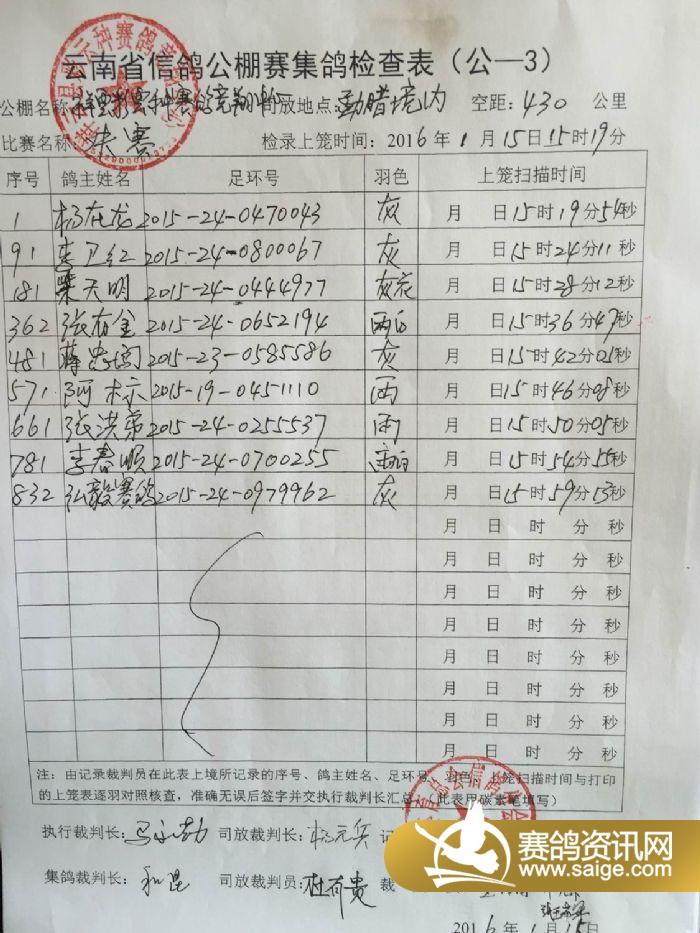 云南省信鸽公棚赛集鸽检查表（公—3）
公棚名称: 司放地点: 勐腊境内 空距: 430 公里
比赛名称: 决赛 检录上笼时间: 2016年1月15日15时19分
序号 鸽主姓名 足环号 羽色 上笼扫描时间
1 杨在龙 2015-24-0470043 灰 月 日15时19分54秒
91 李卫红 2015-24-0800067 灰 月 日15时24分11秒
181 柴天明 2015-24-0444977 灰花 月 日15时28分12秒
362 张有金 2015-24-0652194 雨白 月 日15时36分47秒
481 2015-23-0585586 灰 月 日15时42分05秒
571 阿木示 2015-19-0451110 雨 月 日15时46分08秒
661 张洪弟 2015-24-0255537 雨 月 日15时50分05秒
781 李春顺 2015-24-0700255 雨白 月 日15时54分55秒
832 弘毅赛鸽 2015-24-0979962 灰 月 日15时59分13秒
月 日 时 分 秒
月 日 时 分 秒
月 日 时 分 秒
月 日 时 分 秒
月 日 时 分 秒
月 日 时 分 秒
月 日 时 分 秒
月 日 时 分 秒
注：由记录裁判员在此表上境所记录的序号、鸽主姓名、足环号、羽色、上笼扫描时间与打印
的上笼表逐羽对照核查，准确无误后签字并交执行裁判长汇总。（此表用碳素笔填写）
执行裁判长: 司放裁判长: 杨元兵 记
集鸽裁判长: 和昆 司放裁判员: 杜有贵 裁
2016年1月15日
赛鸽资讯网
www.saige.com